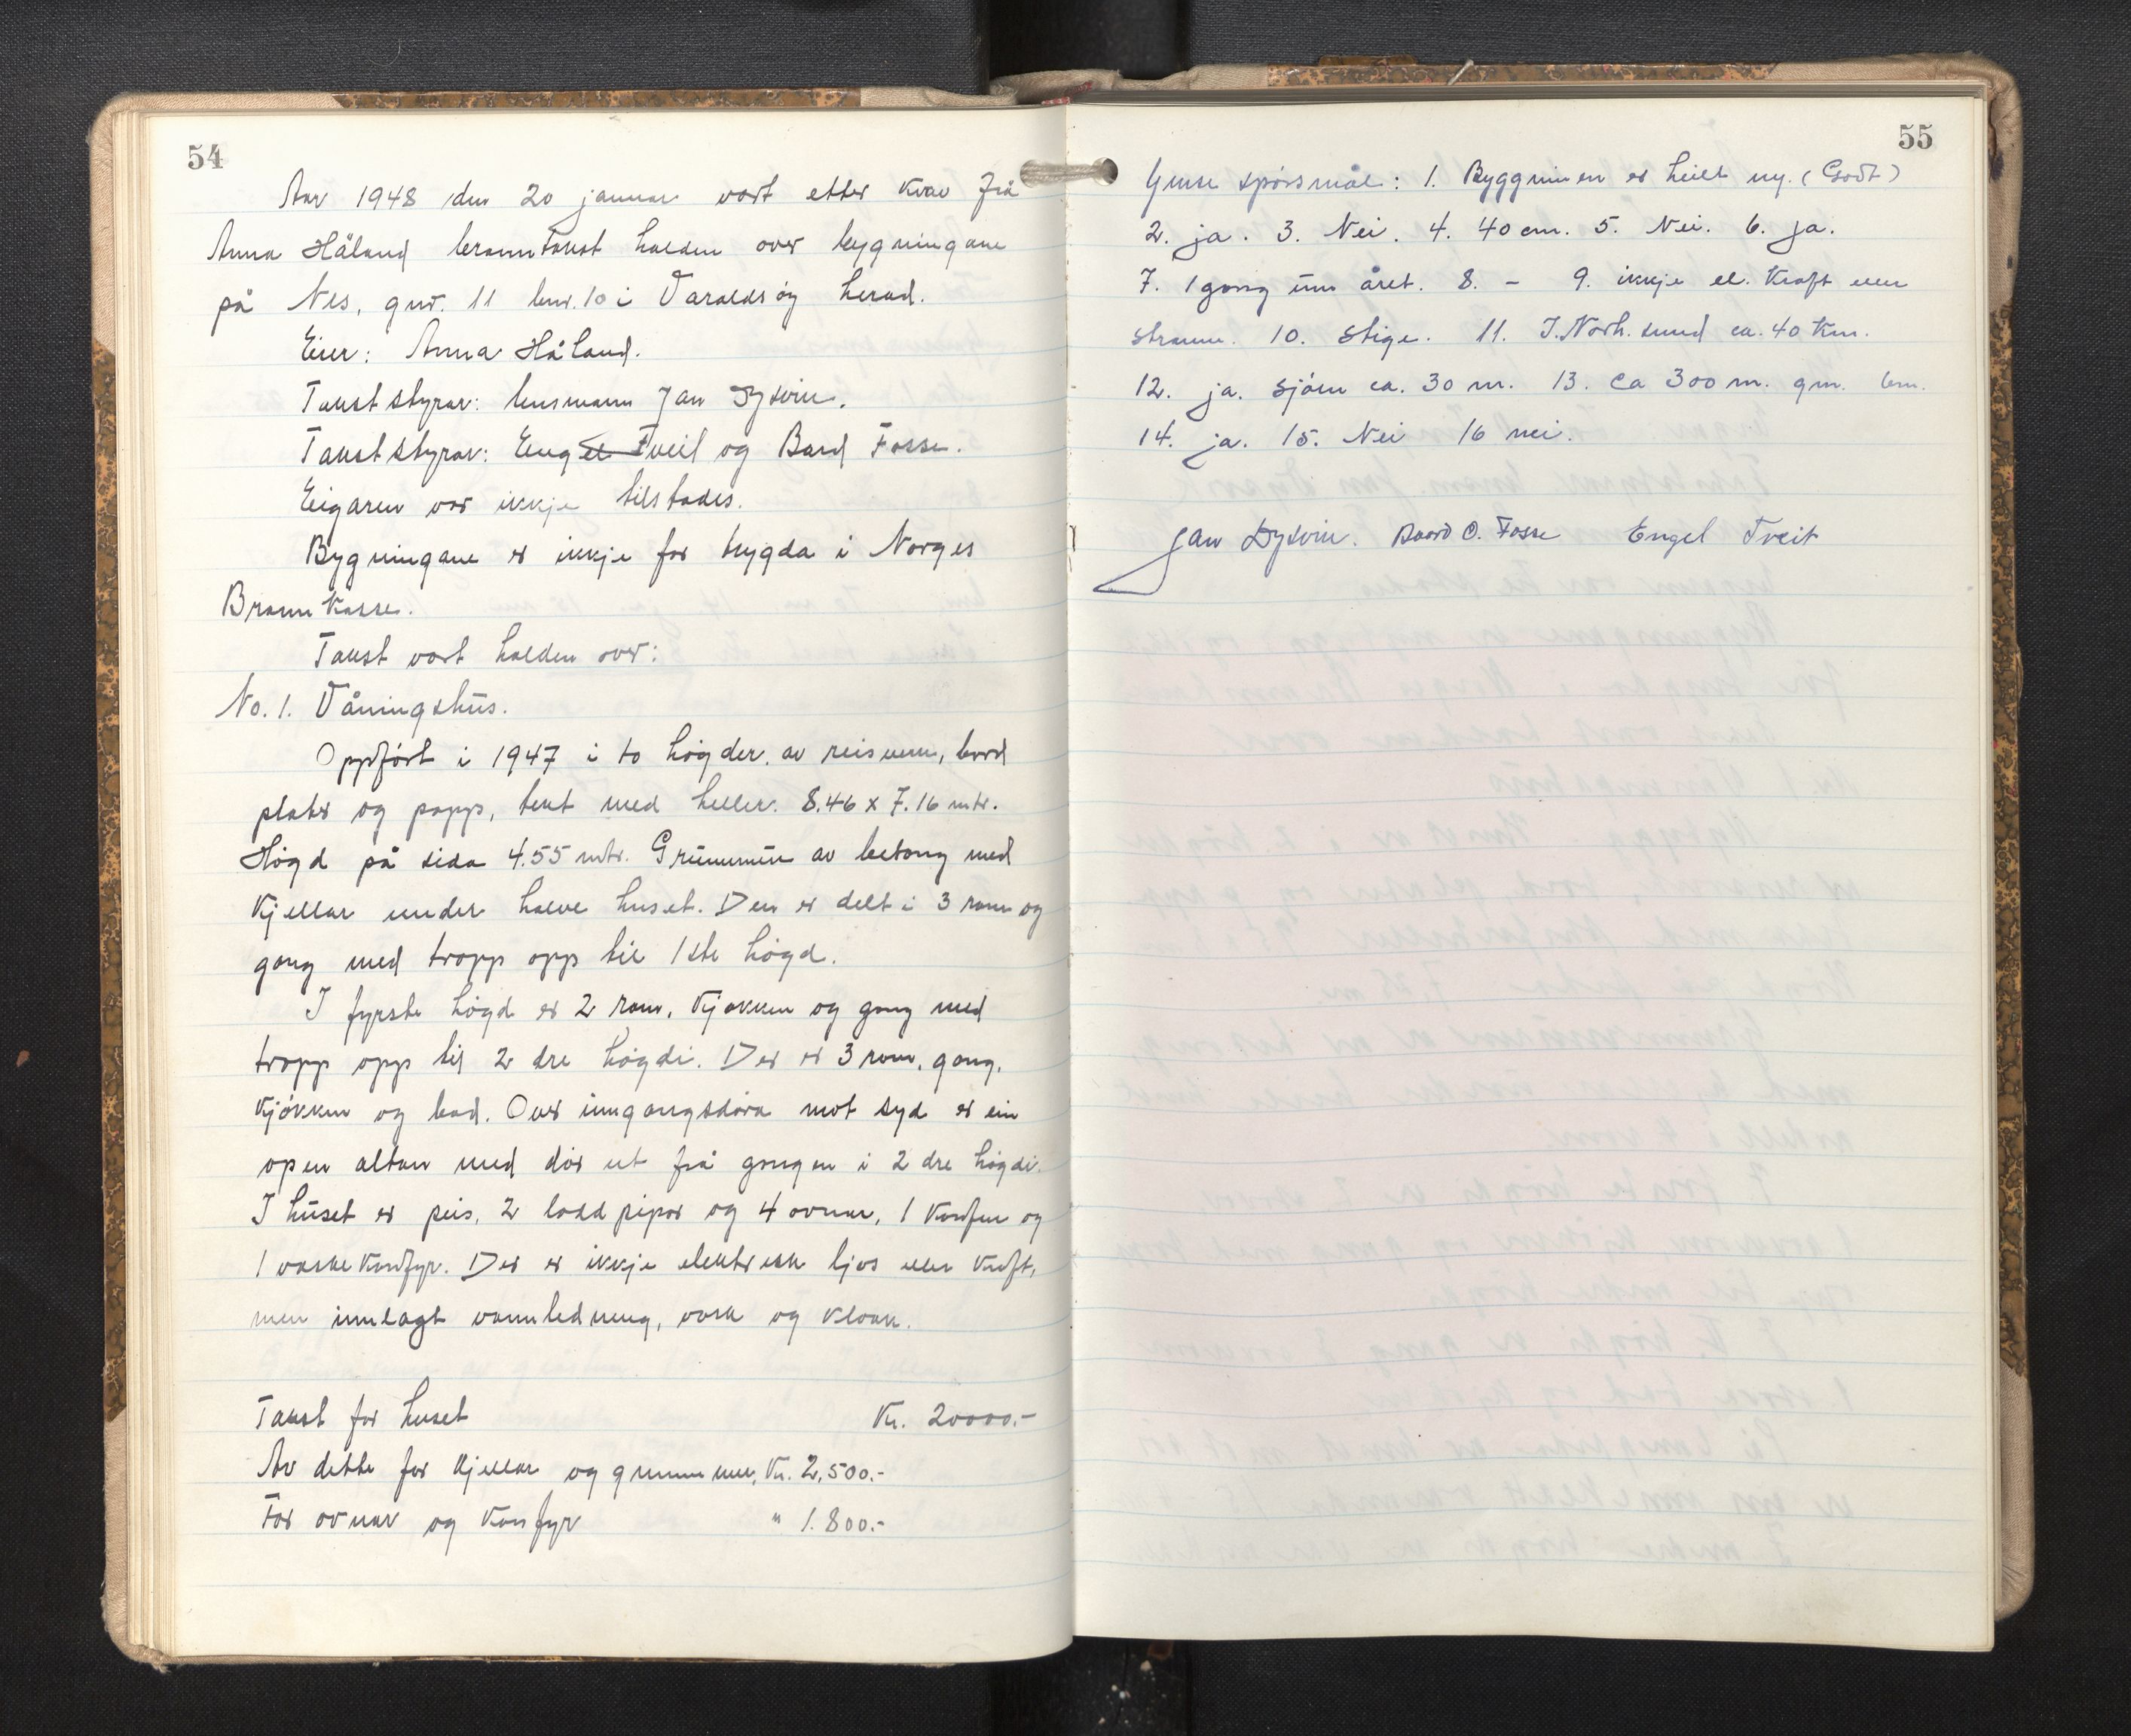 54
Aar 1948 den 20 januar vart etter krav frå
Anna Håland branntakst halden over bygningane
på Nes, gnr. 11 bnr. 10 i Varaldsøy herad.
Eier: Anna Håland.
Takststyrar: lensmann Jan Dysvin.
Takststyrar: Engel Tveit og Bard Fosse.
Eigaren var ikkje tilstades.
Bygningane er ikkje før trygda i Norges
Brannkasse.
Takst vart halden over:
No. 1. Våningshus.
Oppført i 1947 i to høgder, av reisverk, bord
plater og papp, tekt med heller. 8.46 x 7.16 mtr.
Høgd på sida 4.55 mtr. Grunnmur av betong med
kjellar under halve huset. Den er delt i 3 rom og
gang med tropp opp til 1ste høgd.
I fyrste høgd er 2 rom, kjøkken og gang med
tropp opp til 2 dre høgdi. Der er 3 rom, gang,
kjøkken og bad. Over inngangsdøra mot syd er ein
open altan med dør ut frå gangen i 2 dre høgdi.
I huset er peis, 2 ladd pipor og 4 ovnar, 1 komfyr og
1 vaskekomfyr. Der er ikkje elektrisk ljos eller kraft,
men innlagt vannledning, vask og kloakk.
Takst for huset Kr. 20000.-
Av dette for kjellar og grunnmur, Kr. 2,500.-
For ovnar og komfyr " 1.800.-
55
Ymse spørsmål: 1. Byggningen er heilt ny. (Godt)
2. ja. 3. Nei. 4. 40 cm. 5. Nei. 6. ja.
7. 1 gang um året. 8. - 9. ikkje el. kraft eller
straum. 10. Stige. 11. I. Norh.sund ca. 40 km.
12. ja. sjøen ca. 30 m. 13. ca 300 m. gm. bm.
14. ja. 15. Nei 16 nei.
Jan Dysvin. Baard O. Fosse Engel Tveit